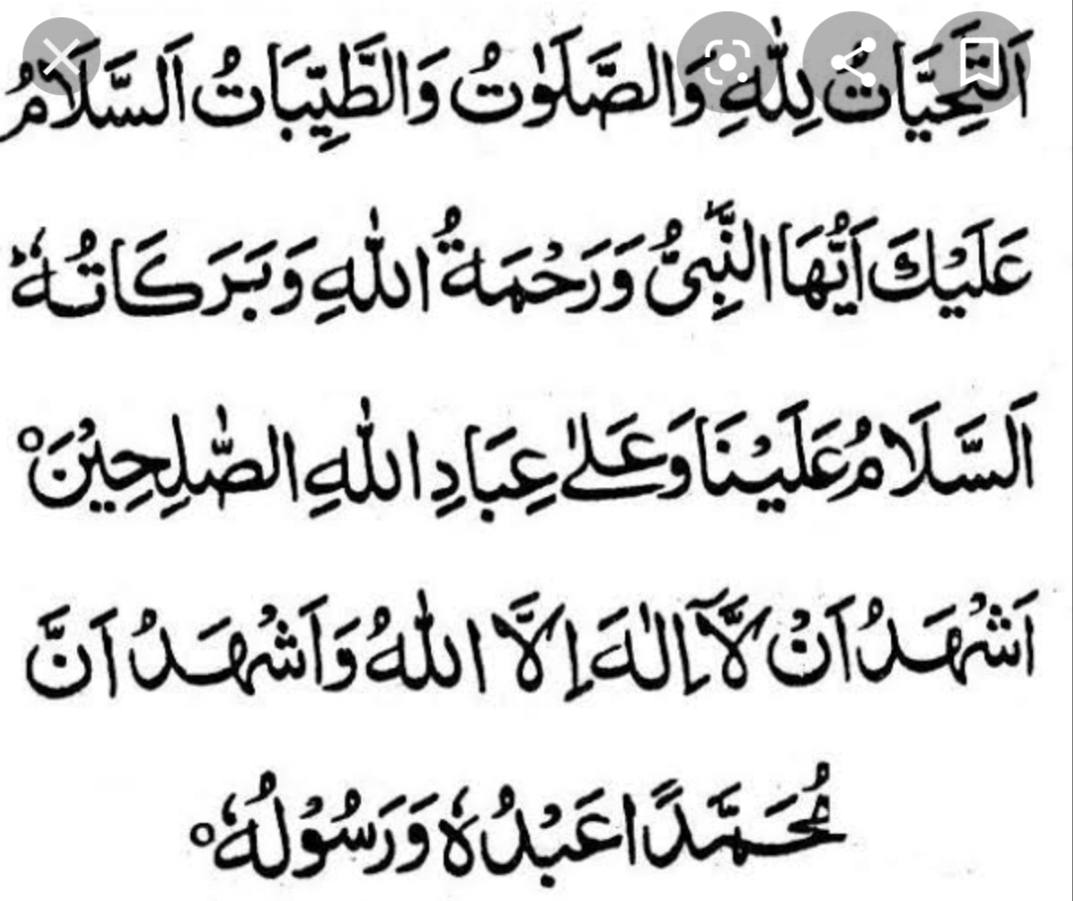 اَلتَّحِيَّاتُ لِلّٰهِ وَالصَّلَوٰتُ وَالطَّيِّبَاتُ اَلسَّلَامُ
عَلَيْكَ اَيُّهَا النَّبِىُّ وَرَحْمَةُ اللّٰهِ وَبَرَكَاتُهٗ ؕ
اَلسَّلَامُ عَلَيْنَا وَعَلٰى عِبَادِ اللّٰهِ الصّٰلِحِيْنَ ○
اَشْهَدُ اَنْ لَّآ اِلٰهَ اِلَّا اللّٰهُ وَاَشْهَدُ اَنَّ
مُحَمَّدًا عَبْدُهٗ وَرَسُوْلُهٗ ○